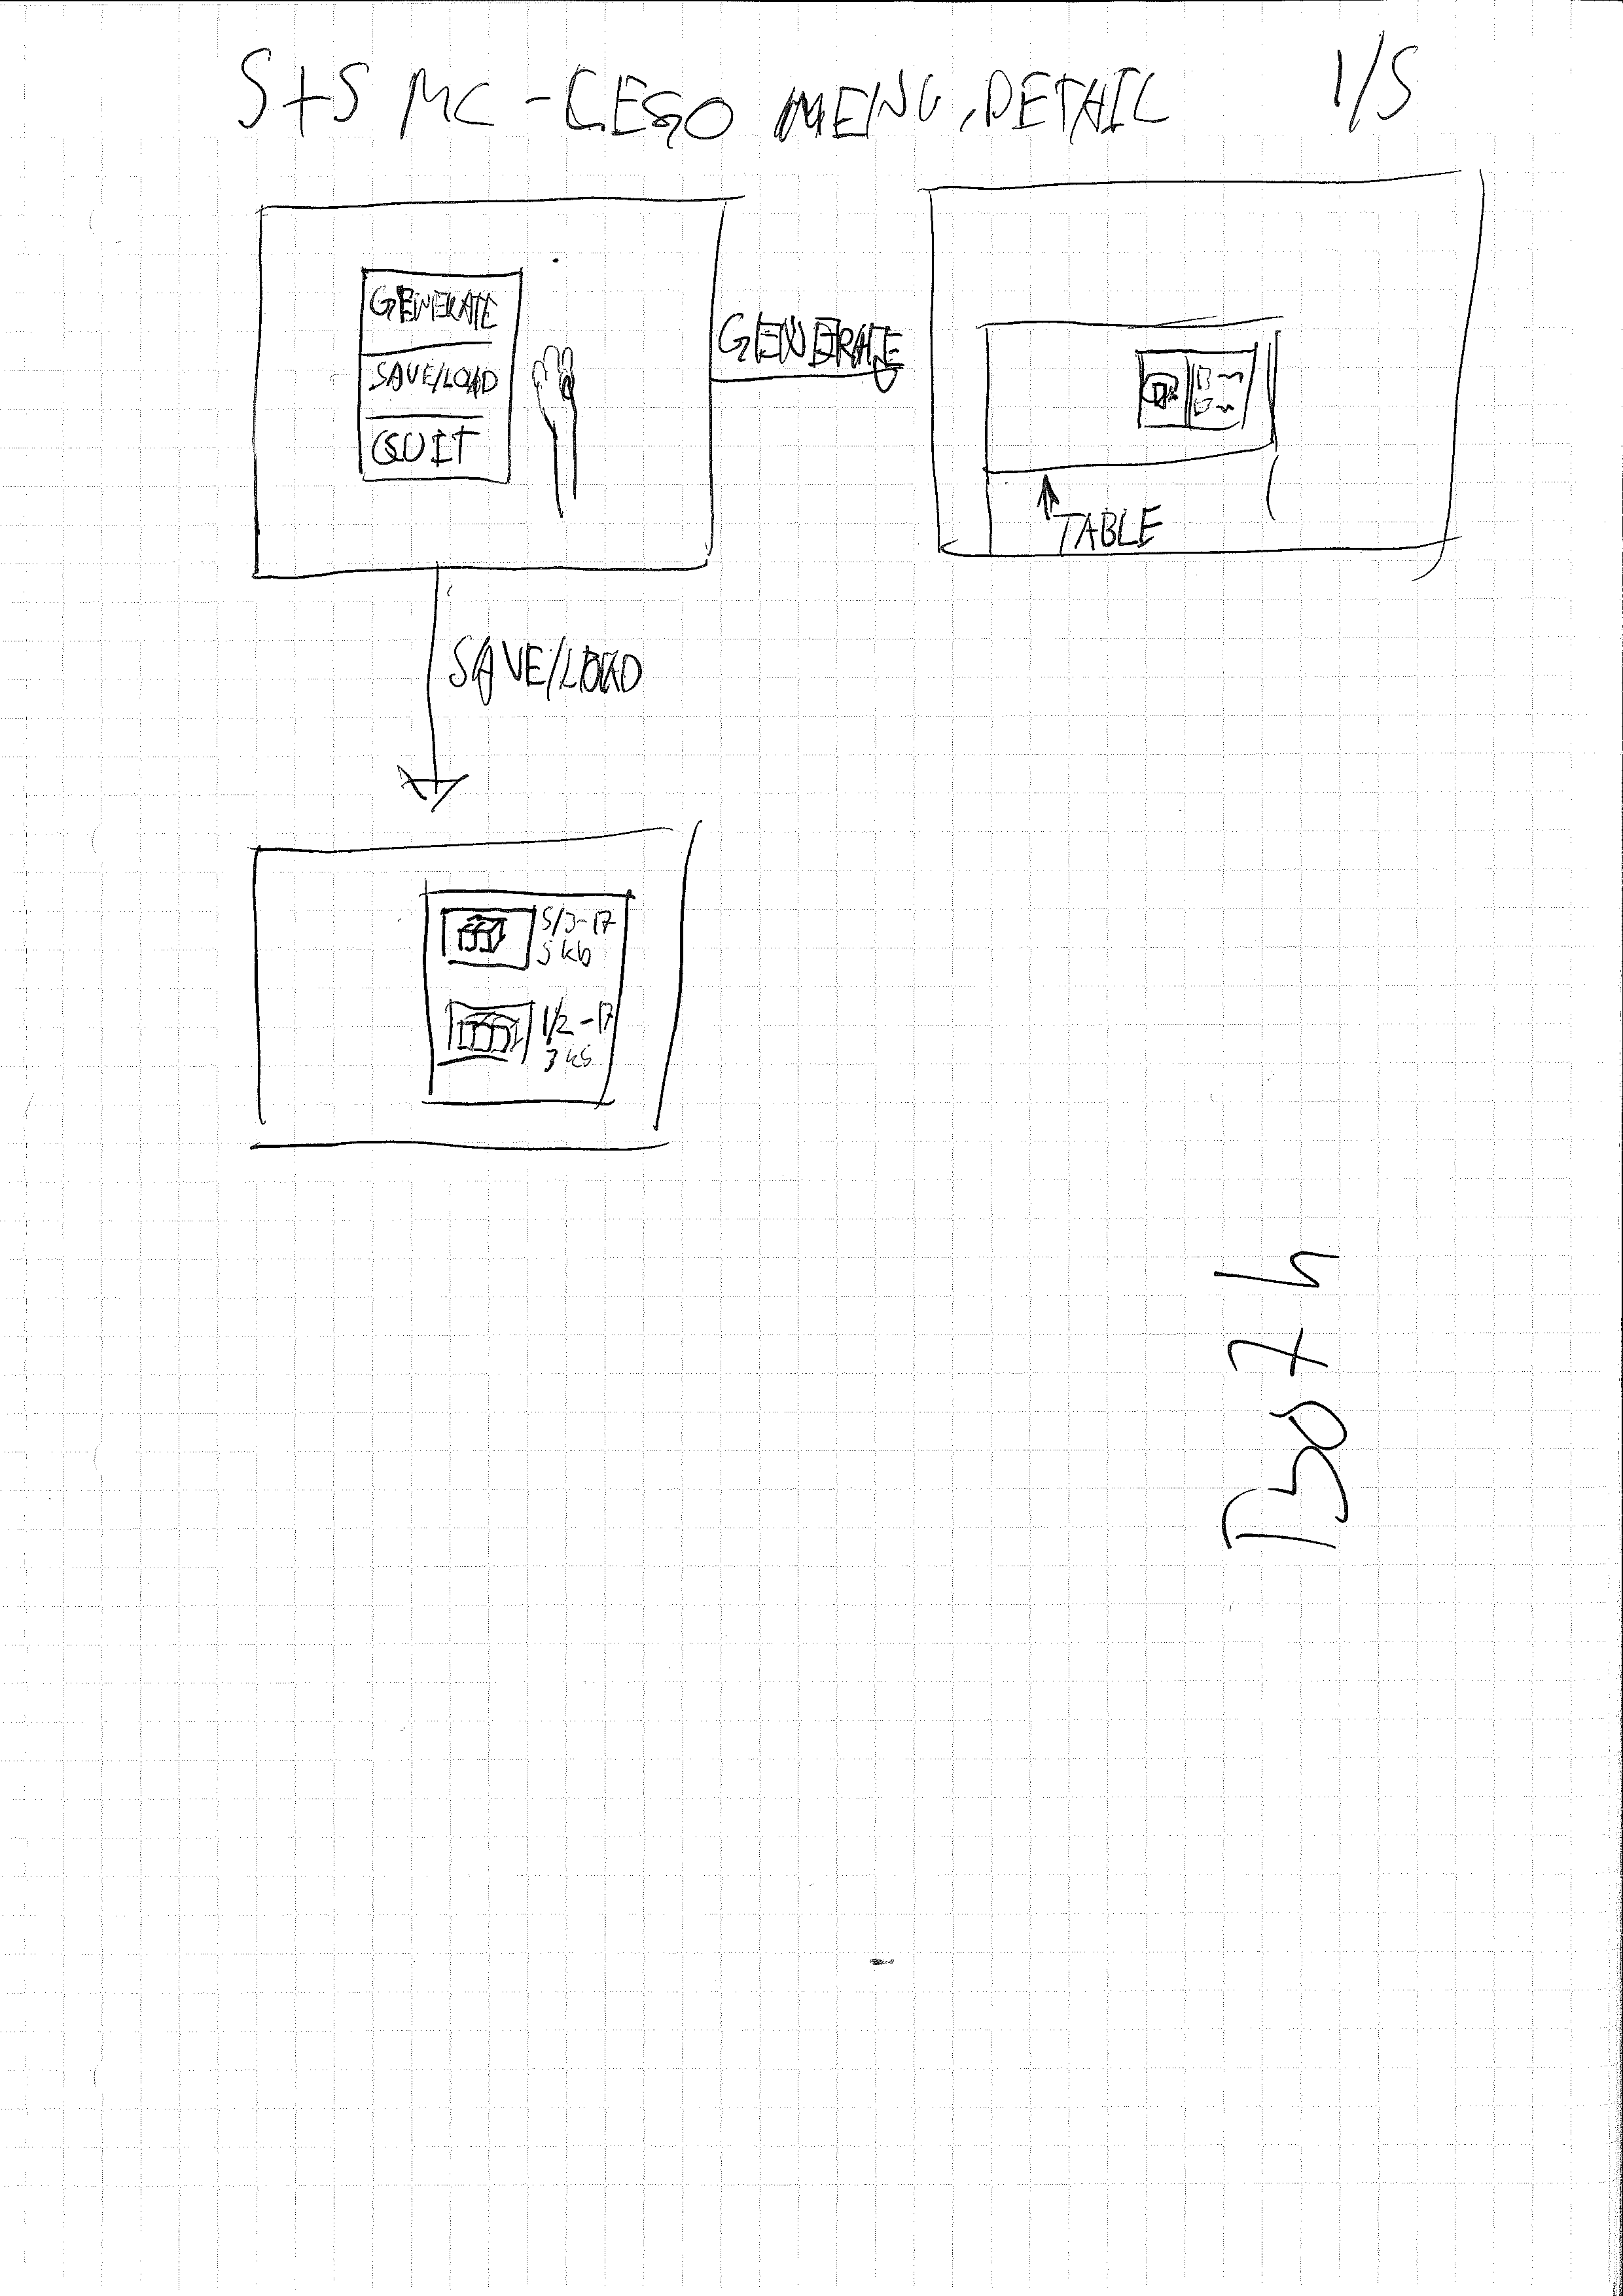 S+S MC-LEGO MENU, DETAIL 1/5
GENERATE
SAVE/LOAD
QUIT
GENERATE
TABLE
SAVE/LOAD
5/3-17
5 kb
1/2-17
3 kb
Both